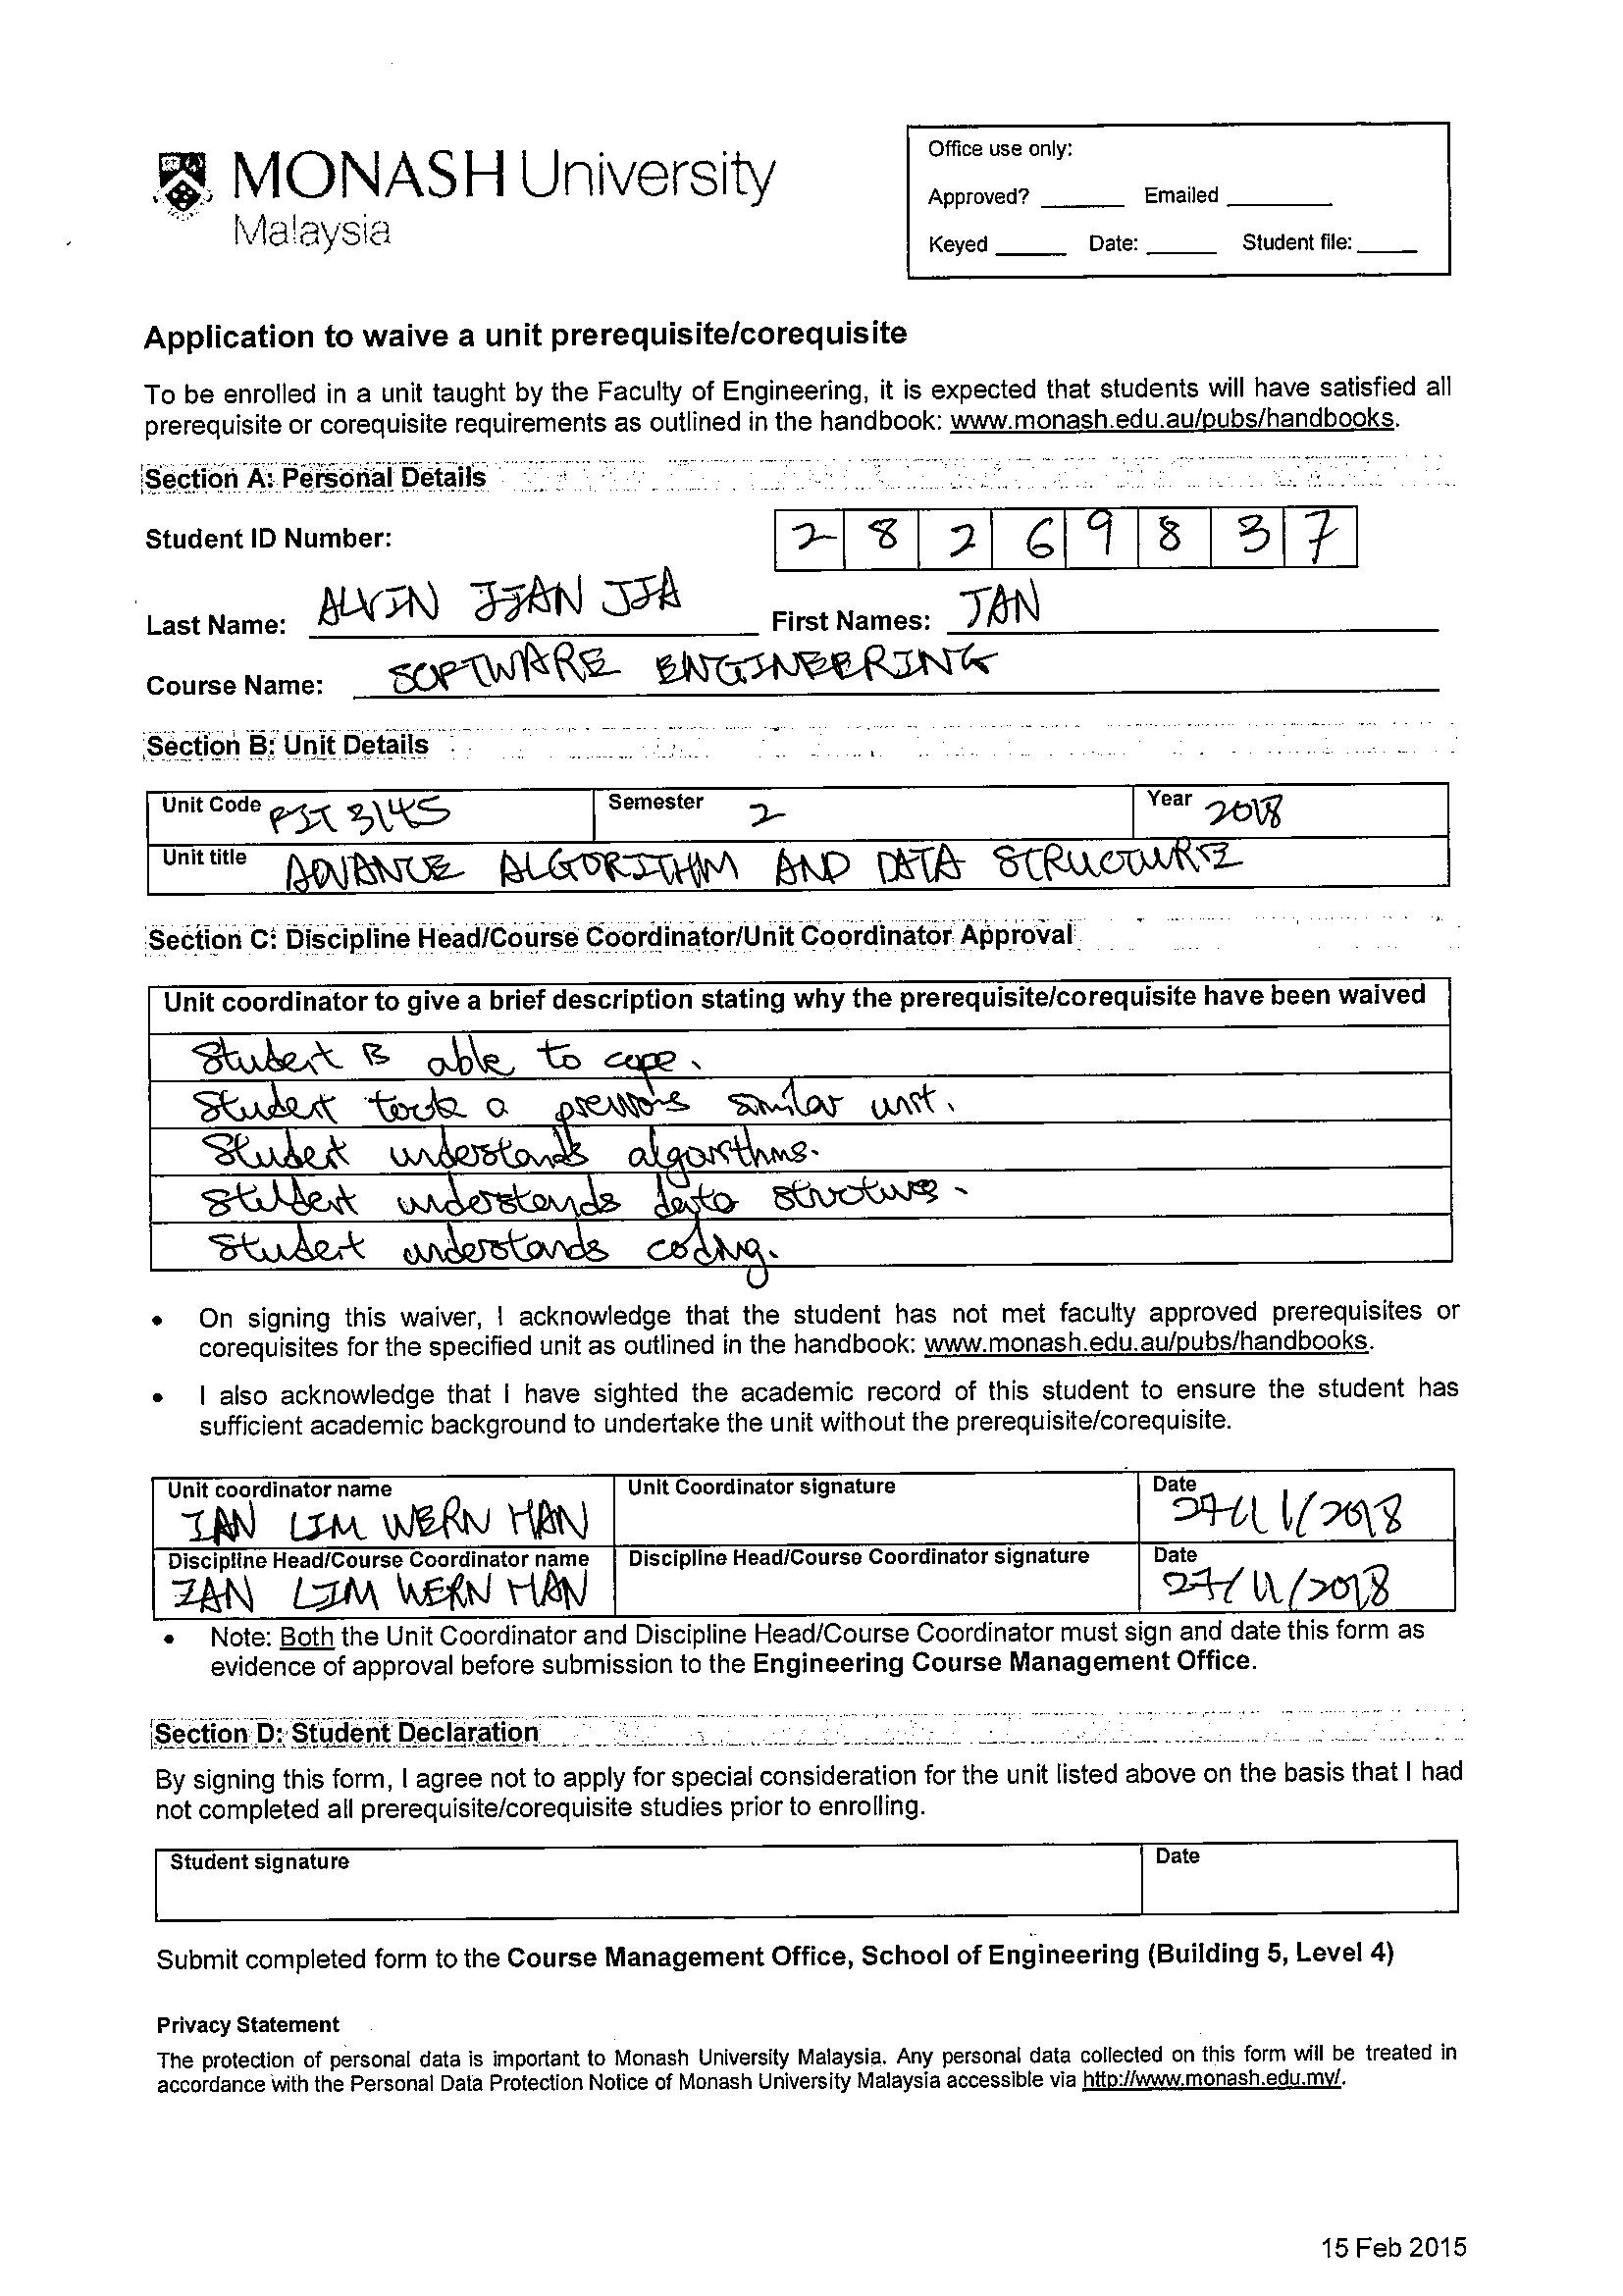 MONASH University
Malaysia
Office use only:
Approved? ______ Emailed ______
Keyed ______ Date: ______ Student file: ______
Application to waive a unit prerequisite/corequisite
To be enrolled in a unit taught by the Faculty of Engineering, it is expected that students will have satisfied all
prerequisite or corequisite requirements as outlined in the handbook: www.monash.edu.au/pubs/handbooks.
Section A: Personal Details
Student ID Number: 2 8 2 6 9 8 3 7
Last Name: ALVIN JIAN JIA First Names: TAN
Course Name: SOFTWARE ENGINEERING
Section B: Unit Details
Unit Code FIT 3145 Semester 2 Year 2018
Unit title ADVANCE ALGORITHM AND DATA STRUCTURE
Section C: Discipline Head/Course Coordinator/Unit Coordinator Approval
Unit coordinator to give a brief description stating why the prerequisite/corequisite have been waived
Student is able to cope.
Student took a previous similar unit.
Student understands algorithms.
Student understands data structures.
Student understands coding.
• On signing this waiver, I acknowledge that the student has not met faculty approved prerequisites or
corequisites for the specified unit as outlined in the handbook: www.monash.edu.au/pubs/handbooks.
• I also acknowledge that I have sighted the academic record of this student to ensure the student has
sufficient academic background to undertake the unit without the prerequisite/corequisite.
Unit coordinator name Unit Coordinator signature Date
IAN LIM WERN HAN 27/11/2018
Discipline Head/Course Coordinator name Discipline Head/Course Coordinator signature Date
IAN LIM WERN HAN 27/11/2018
• Note: Both the Unit Coordinator and Discipline Head/Course Coordinator must sign and date this form as
evidence of approval before submission to the Engineering Course Management Office.
Section D: Student Declaration
By signing this form, I agree not to apply for special consideration for the unit listed above on the basis that I had
not completed all prerequisite/corequisite studies prior to enrolling.
Student signature Date
Submit completed form to the Course Management Office, School of Engineering (Building 5, Level 4)
Privacy Statement
The protection of personal data is important to Monash University Malaysia. Any personal data collected on this form will be treated in
accordance with the Personal Data Protection Notice of Monash University Malaysia accessible via http://www.monash.edu.my/.
15 Feb 2015